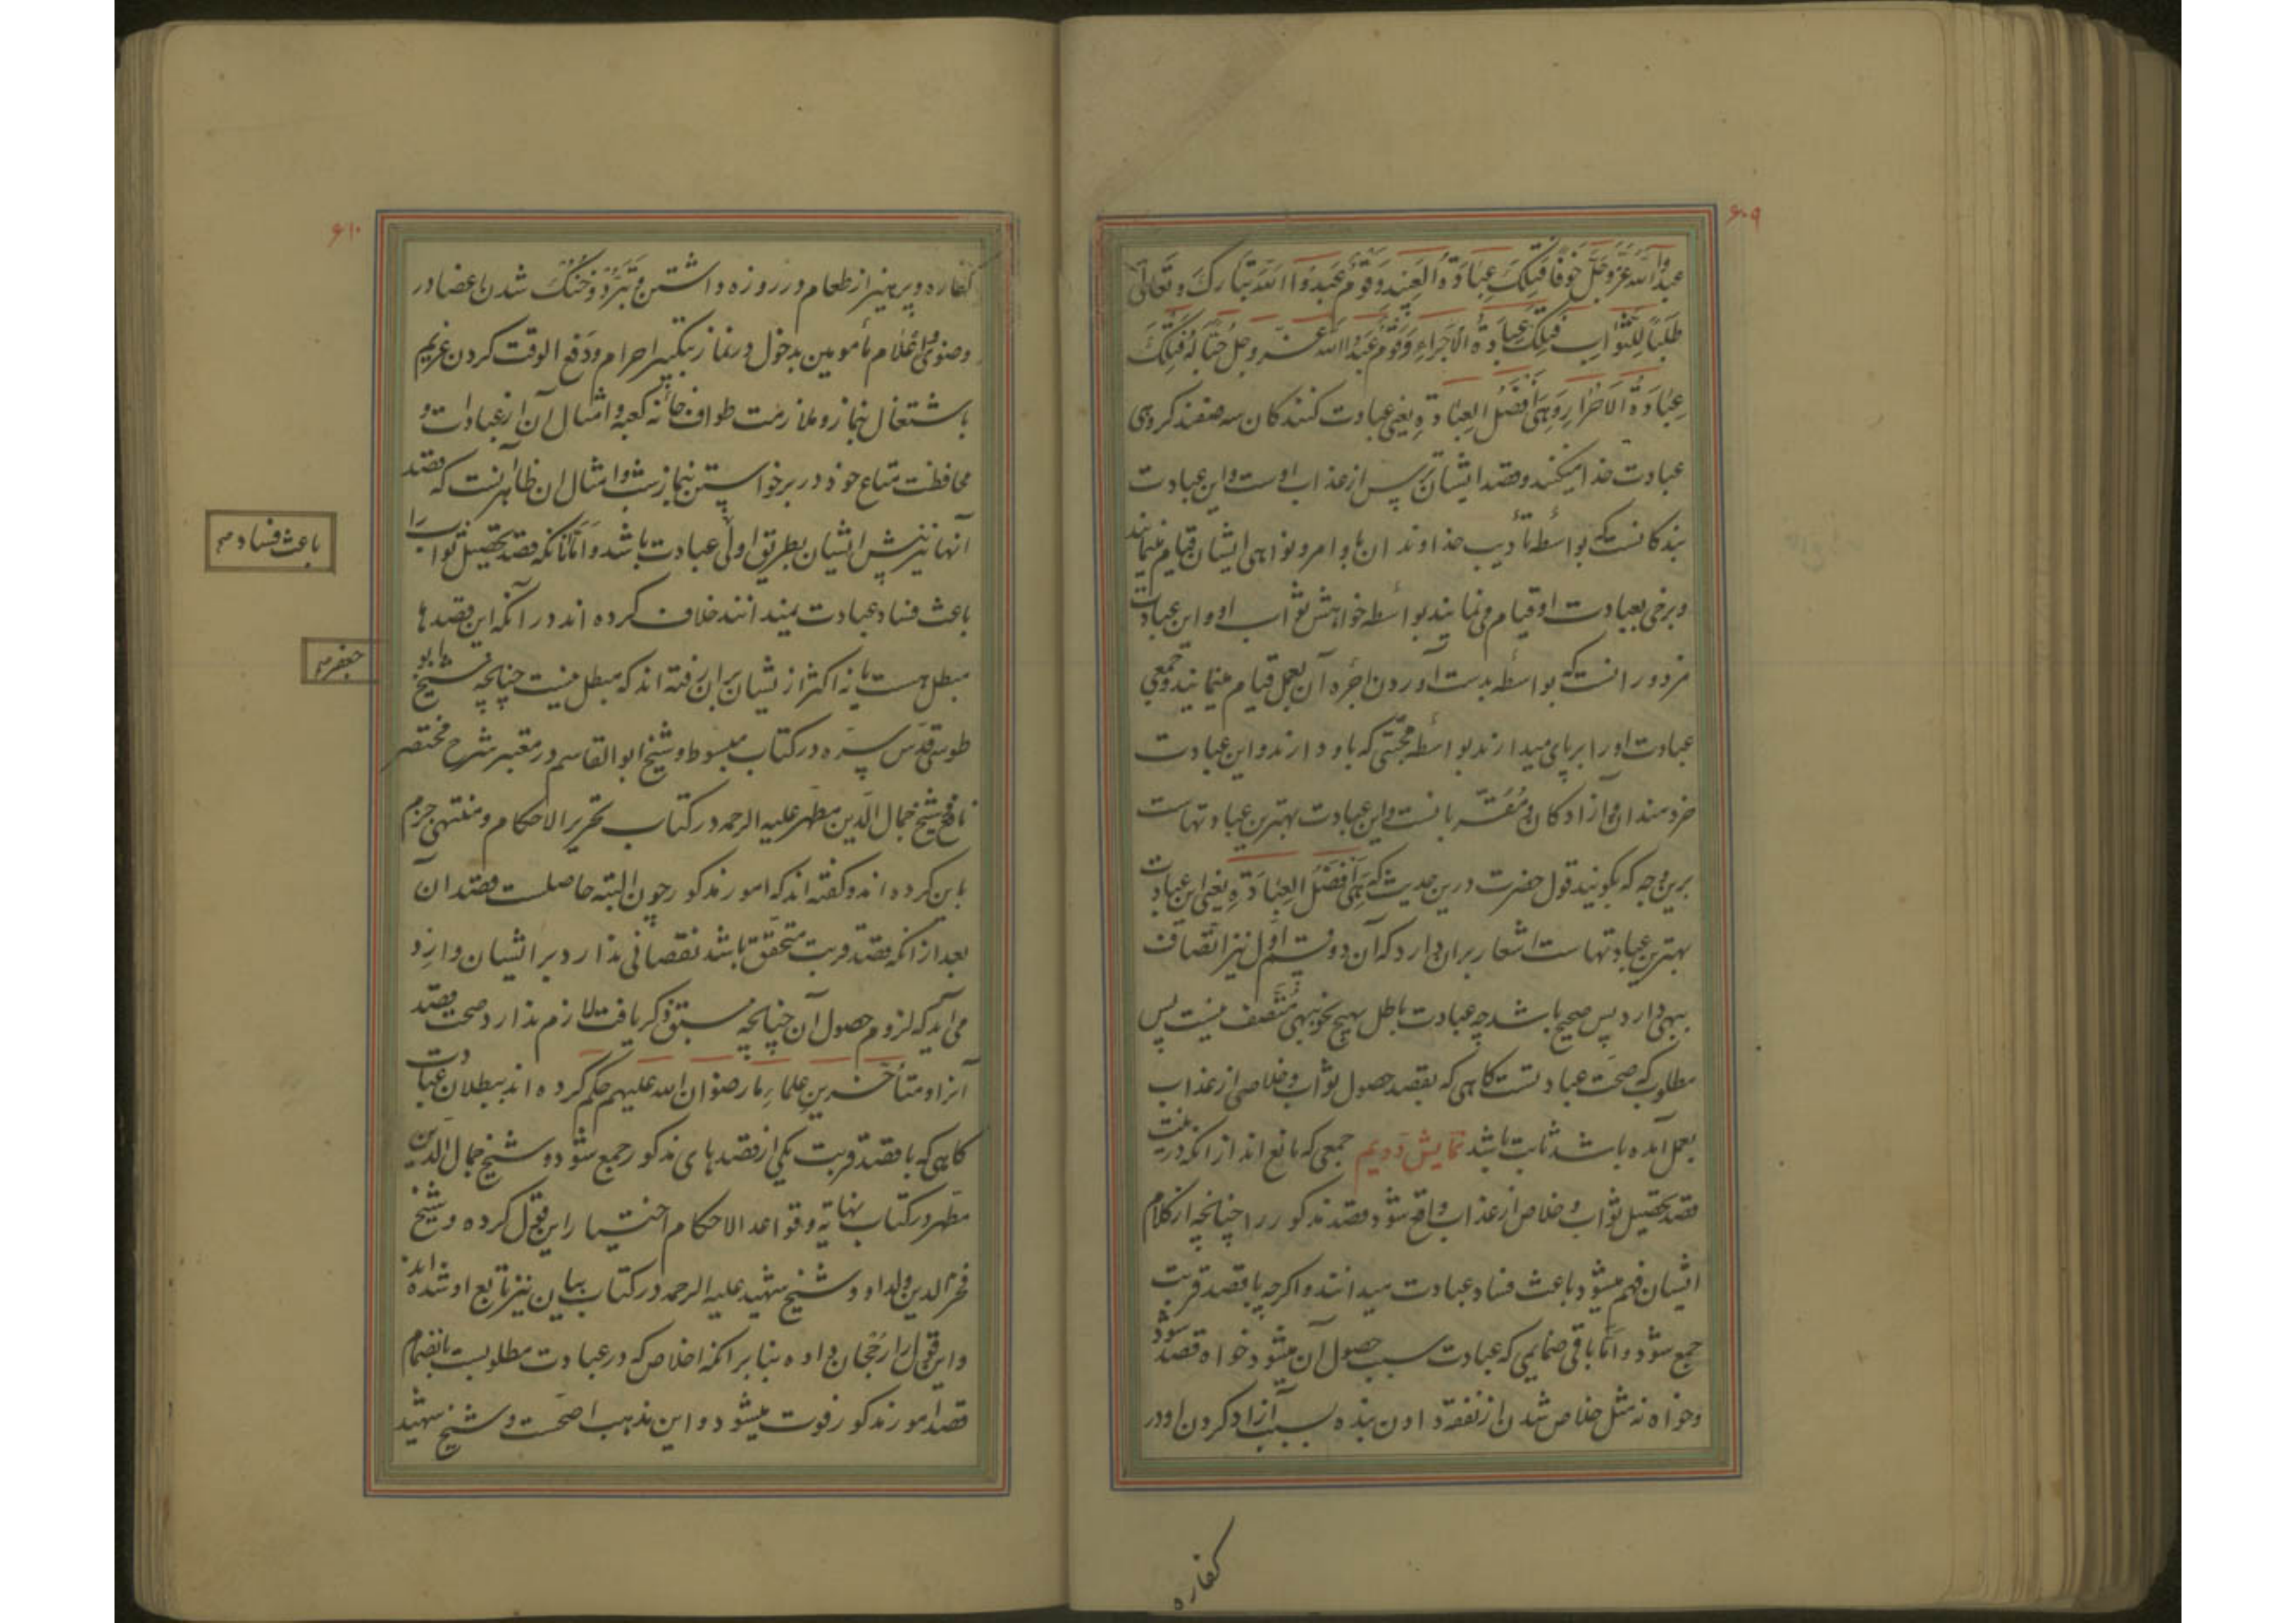 ۶۰۹
عبدوا الله عَزَّ وَجَلَّ خَوْفًا فَتِلْكَ عِبَادَةُ الْعَبِيدِ وَقَوْمٌ عَبَدُوا اللهَ تَبَارَكَ وَتَعَالَى
طَلَبًا لِلثَّوَابِ فَتِلْكَ عِبَادَةُ الْأُجَرَاءِ وَقَوْمٌ عَبَدُوا اللهَ عَزَّ وَجَلَّ حُبًّا لَهُ فَتِلْكَ
عِبَادَةُ الْأَحْرَارِ وَهِيَ أَفْضَلُ الْعِبَادَةِ یعنی عبادت کنندکان سه صنفند کروهی
عبادت خدا میکنند و قصد ایشان ترس از عذاب اوست و این عبادت
بندکانست که بواسطه تأدیب خداوندان باوامر و نواهی ایشان قیام مینمایند
و برخی بعبادت او قیام می نمایند بواسطه خواهش ثواب او و این عبادت
مزدورانست که بواسطه بدست آوردن اجره آن بعمل قیام مینمایند و جمعی
عبادت او را برپای میدارند بواسطه محبّتی که باو دارند و این عبادت
خردمندان و آزادکان و مُقَرّبانست و این عبادت بهترین عبادتهاست
برین وجه که بکویند قول حضرت درین حدیث که هِيَ أَفْضَلُ الْعِبَادَةِ یعنی این عبادت
بهترین عبادتهاست اشعار بران دارد که آن دو قسم اول نیز اتّصاف
ببهی دارد پس صحیح باشد چه عبادت باطل بهیچ نحو ببهی مُتَّصف نیست پس
مطلوب که صحّت عبادتست کاهی که بقصد حصول ثواب و خلاصی از عذاب
بعمل آمده باشد ثابت باشد نمایش دویم جمعی که مانع اند از انکه در نیّت
قصد تحصیل ثواب و خلاص از عذاب واقع شود قصد مذکور را چنانچه از کلام
ایشان فهم میشود باعث فساد عبادت میدانند و اکرچه با قصد قربت
جمع شود و امّا باقی ضمایمی که عبادت سبب حصول آن میشود خواه قصد شود
و خواه نه مثل خلاص شدن از نفقه دادن بنده بسبب آزاد کردن او در
کفاره
۶۱۰
کفاره و پرهیز از طعام در روزه داشتن و تَبَرُّد و خنک شدن اعضا در
وضو و اِعْلام مأمومین بدخول در نماز بتکبیر احرام و دفع الوقت کردن غریم
باشتغال بنماز و ملازمت طواف خانه کعبه و امثال آن از عبادات و
محافظت متاع خود در برخواستن بنماز شب و امثال ان ظاهرانست که قصد
آنها نیز پیش ایشان بطریق اولی عبادت باشد و امّا آنانکه قصد تحصیل ثواب را
باعث فساد عبادت نمیدانند خلاف کرده اند در آنکه این قصدها
مبطل هست یا نه اکثر از یشان بران رفته اند که مبطل نیست چنانچه شیخ ابو
طوسی قدّس سِرّه در کتاب مبسوط و شیخ ابوالقاسم در معتبر شرح مختصر
نافع شیخ جمال الدّین مطهّر علیه الرحمه در کتاب تحریر الاحکام و منتهی جزم
باین کرده اند و کفته اند که امور مذکور چون البته حاصلست قصد ان
بعد از انکه قصد قربت متحقّق باشد نقصانی ندارد بر ایشان وارد
می آید که لزوم حصول آن چنانچه سبق ذکر یافت لازم ندارد صحت قصد
آنرا و متأخّرین علماءِ ما رضوان الله علیهم حکم کرده اند ببطلان عبادت
کاهی که با قصد قربت یکی از قصدهای مذکور جمع شود و شیخ جمال الدین
مطهّر در کتاب نهایه و قواعد الاحکام اختیار این قول کرده و شیخ
فخر الدین ولد او و شیخ شهید علیه الرحمه در کتاب بیان نیز تابع او شده اند
و این قول را رُجْحان داده بنابر انکه اخلاص که در عبادت مطلوبست بانضمام
قصد امور مذکور فوت میشود و این مذهب اصّحت و شیخ شهید
باعث فساد صح
جعفر صح